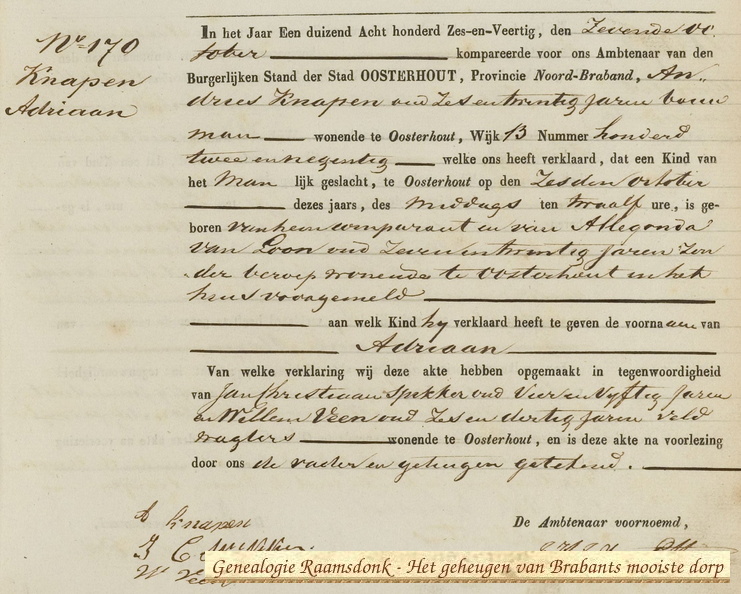 No 170
Knapen
Adriaan
In het Jaar Een duizend Acht honderd Zes-en-Veertig, den Zevende oc
tober kompareerde voor ons Ambtenaar van den
Burgerlijken Stand der Stad OOSTERHOUT, Provincie Noord-Braband, An„
dries Knapen oud Zes en twintig jaren bouw
man wonende te Oosterhout, Wijk B Nummer honderd
twee en negentig welke ons heeft verklaard, dat een Kind van
het Man lijk geslacht, te Oosterhout op den Zesden october
dezes jaars, des Middags ten twaalf ure, is ge-
boren van hem comparant en van Allegonda
van Loon oud Zeven en twintig jaren Zon
der beroep wonende te Oosterhout in het
huis voorgemeld
aan welk Kind hy verklaard heeft te geven de voornaam van
Adriaan
Van welke verklaring wij deze akte hebben opgemaakt in tegenwoordigheid
van Jan Christiaan Spekker oud Vier en Vyftig Jaren
en Willem Veen oud Zes en dertig Jaren veld
wagters wonende te Oosterhout, en is deze akte na voorlezing
door ons de vader en getuigen getekend.
A Knapen
De Ambtenaar voornoemd,
W Veen
Genealogie Raamsdonk - Het geheugen van Brabants mooiste dorp